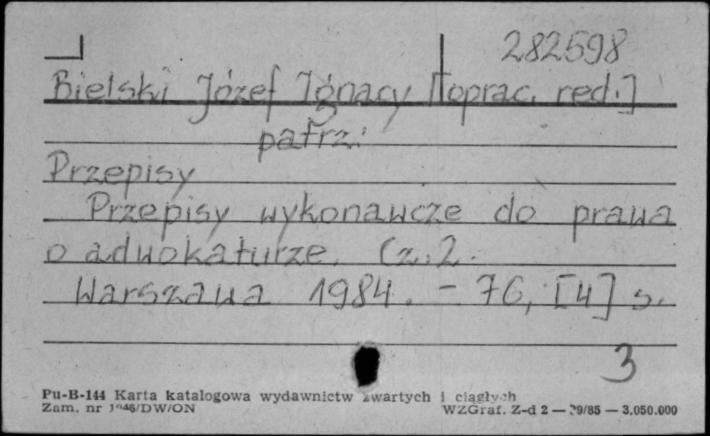 282598
Bielski Józef Ignacy [oprac. red.]
patrz:
Przepisy
Przepisy wykonawcze do prawa
o adwokaturze. Cz. 2.
Warszawa 1984. - 76, [4] s.
3
Pu-B-144 Karta katalogowa wydawnictw zwartych i ciągłych
Zam. nr WZGraf. Z-d 2 — 3.050.000